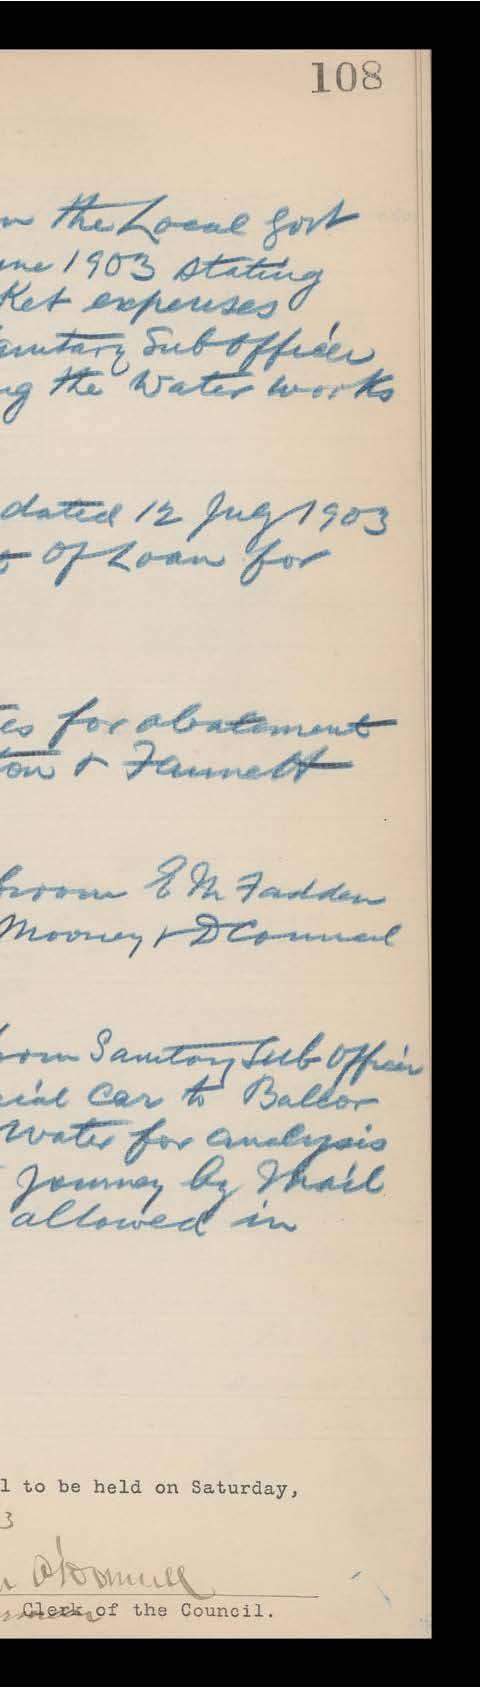 108
the Local Govt
une 1903 stating
ket expenses
anitary Sub Officer
ng the Water works
dated 12 July 1903
of Loan for
es for abatement
ton & Fannett
broom E Mc Fadden
Mooney & D Connail
rom Sanitary Sub Officer
cial Car to Balbor
Water for analysis
Journey by Mail
allowed in
l to be held on Saturday,
3
O'Donnell
Clerk of the Council.